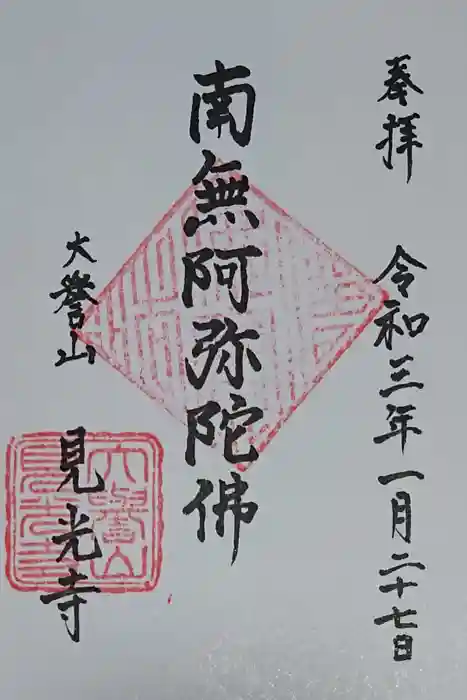 奉拝
令和三年一月二十七日
南無阿弥陀佛
大誉山
見光寺